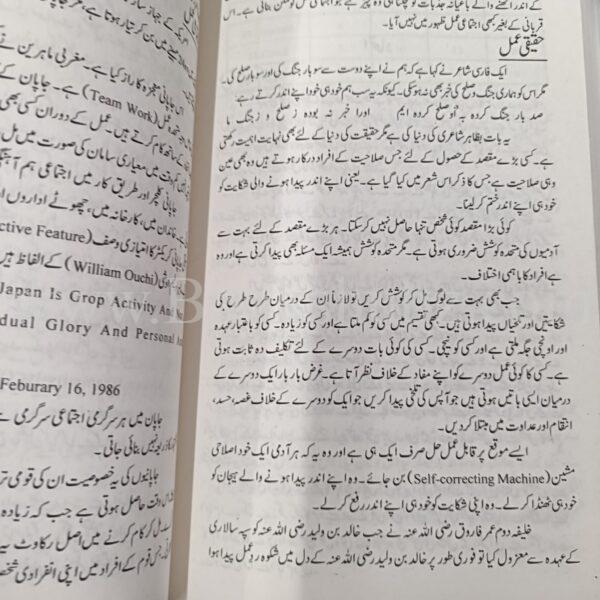 کے اندر اٹھنے والے باغیانہ جذبات کو
قربانی کے بغیر کبھی اجتماعی عمل ظہور میں نہیں آیا۔
حقیقی عمل
ایک فارسی شاعر نے کہا ہے کہ ہم نے اپنے دوست سے سو بار جنگ کی اور سو بار صلح کی۔
مگر اس کو ہماری جنگ و صلح کی خبر بھی نہ ہوسکی۔ کیونکہ یہ سب ہم خود ہی خود اپنے اندر کرتے رہے
صد بار جنگ کردہ بہ اُو صلح کردہ ایم اورا خبر نہ بودہ ز صلح و ز جنگ ما
یہ بات بظاہر شاعری کی دنیا کی ہے مگر حقیقت کی دنیا کے لئے بھی نہایت اہمیت رکھتی
ہے۔ کسی بڑے مقصد کے حصول کے لئے جس صلاحیت کے افراد درکار ہوتے ہیں وہ بھی عین
وہی صلاحیت ہے جس کا ذکر اس شعر میں کیا گیا ہے۔ یعنی اپنے اندر پیدا ہونے والی شکایت کو
خود ہی اپنے اندر ختم کر لینا۔
کوئی بڑا مقصد کوئی شخص تنہا حاصل نہیں کر سکتا۔ ہر بڑے مقصد کے لئے بہت سے
آدمیوں کی متحدہ کوشش ضروری ہوتی ہے۔ مگر متحدہ کوشش ہمیشہ ایک مسئلہ بھی پیدا کرتی ہے اور وہ
ہے افراد کا باہمی اختلاف۔
جب بھی بہت سے لوگ مل کر کوشش کریں تو لازماً ان کے درمیان طرح طرح کی
شکایتیں اور تلخیاں پیدا ہوتی ہیں۔ کبھی تقسیم میں کسی کو کم ملتا ہے اور کسی کو زیادہ۔ کسی کو باعتبار عہدہ
اور اونچی جگہ ملتی ہے اور کسی کو نیچی۔ کسی کی کوئی بات دوسرے کے لئے تکلیف دہ ثابت ہوتی
ہے۔ کسی کا کوئی عمل دوسرے کو اپنے مفاد کے خلاف نظر آتا ہے۔ غرض بار بار ایک دوسرے کے
درمیان ایسی باتیں ہوتی ہیں جو آپس کی تلخی پیدا کریں جو ایک کو دوسرے کے خلاف غصہ، حسد،
انتقام اور عداوت میں مبتلا کر دیں۔
ایسے موقع پر قابل عمل حل صرف ایک ہی ہے اور وہ یہ کہ ہر آدمی ایک خود اصلاحی
مشین (Self-correcting Machine) بن جائے۔ وہ اپنے اندر پیدا ہونے والے ہیجان کو
خود ہی ٹھنڈا کر لے۔ وہ اپنی شکایت کو خود ہی اپنے اندر رفع کر لے۔
خلیفہ دوم عمر فاروق رضی اللہ عنہ نے جب خالد بن ولید رضی اللہ عنہ کو سپہ سالاری
کے عہدہ سے معزول کیا تو فوری طور پر خالد بن ولید رضی اللہ عنہ کے دل میں شکوہ ردِ عمل پیدا ہوا
اس جاپانی معجزہ کا راز کیا ہے۔ مغربی ماہرین نے
عمل (Team Work) ہے۔ جاپان کے
کے ساتھ کام کرتے ہیں۔ عمل کے دوران کسی بھی
وقت میں معیاری سامان کی صورت میں
جاپانی کلچر اور طریق کار میں اجتماعی ہم آہنگی
خاندان میں، کارخانہ میں، چھوٹے اداروں
کریکٹر کا امتیازی وصف (ctive Feature
(William Ouchi) کے الفاظ ہیں
Japan Is Grop Activity And
dual Glory And Personal
Feburary 16, 1986
جاپان میں ہر سرگرمی اجتماعی سرگرمی ہے
نہیں بنائی جاتی۔
جاپانیوں کی یہ خصوصیت ان کی قومی
وقت حاصل ہوتی ہے جب کہ زیادہ
مل کر کام کرنے میں اصل رکاوٹ یہ
جس قوم کے افراد میں اپنی انفرادی